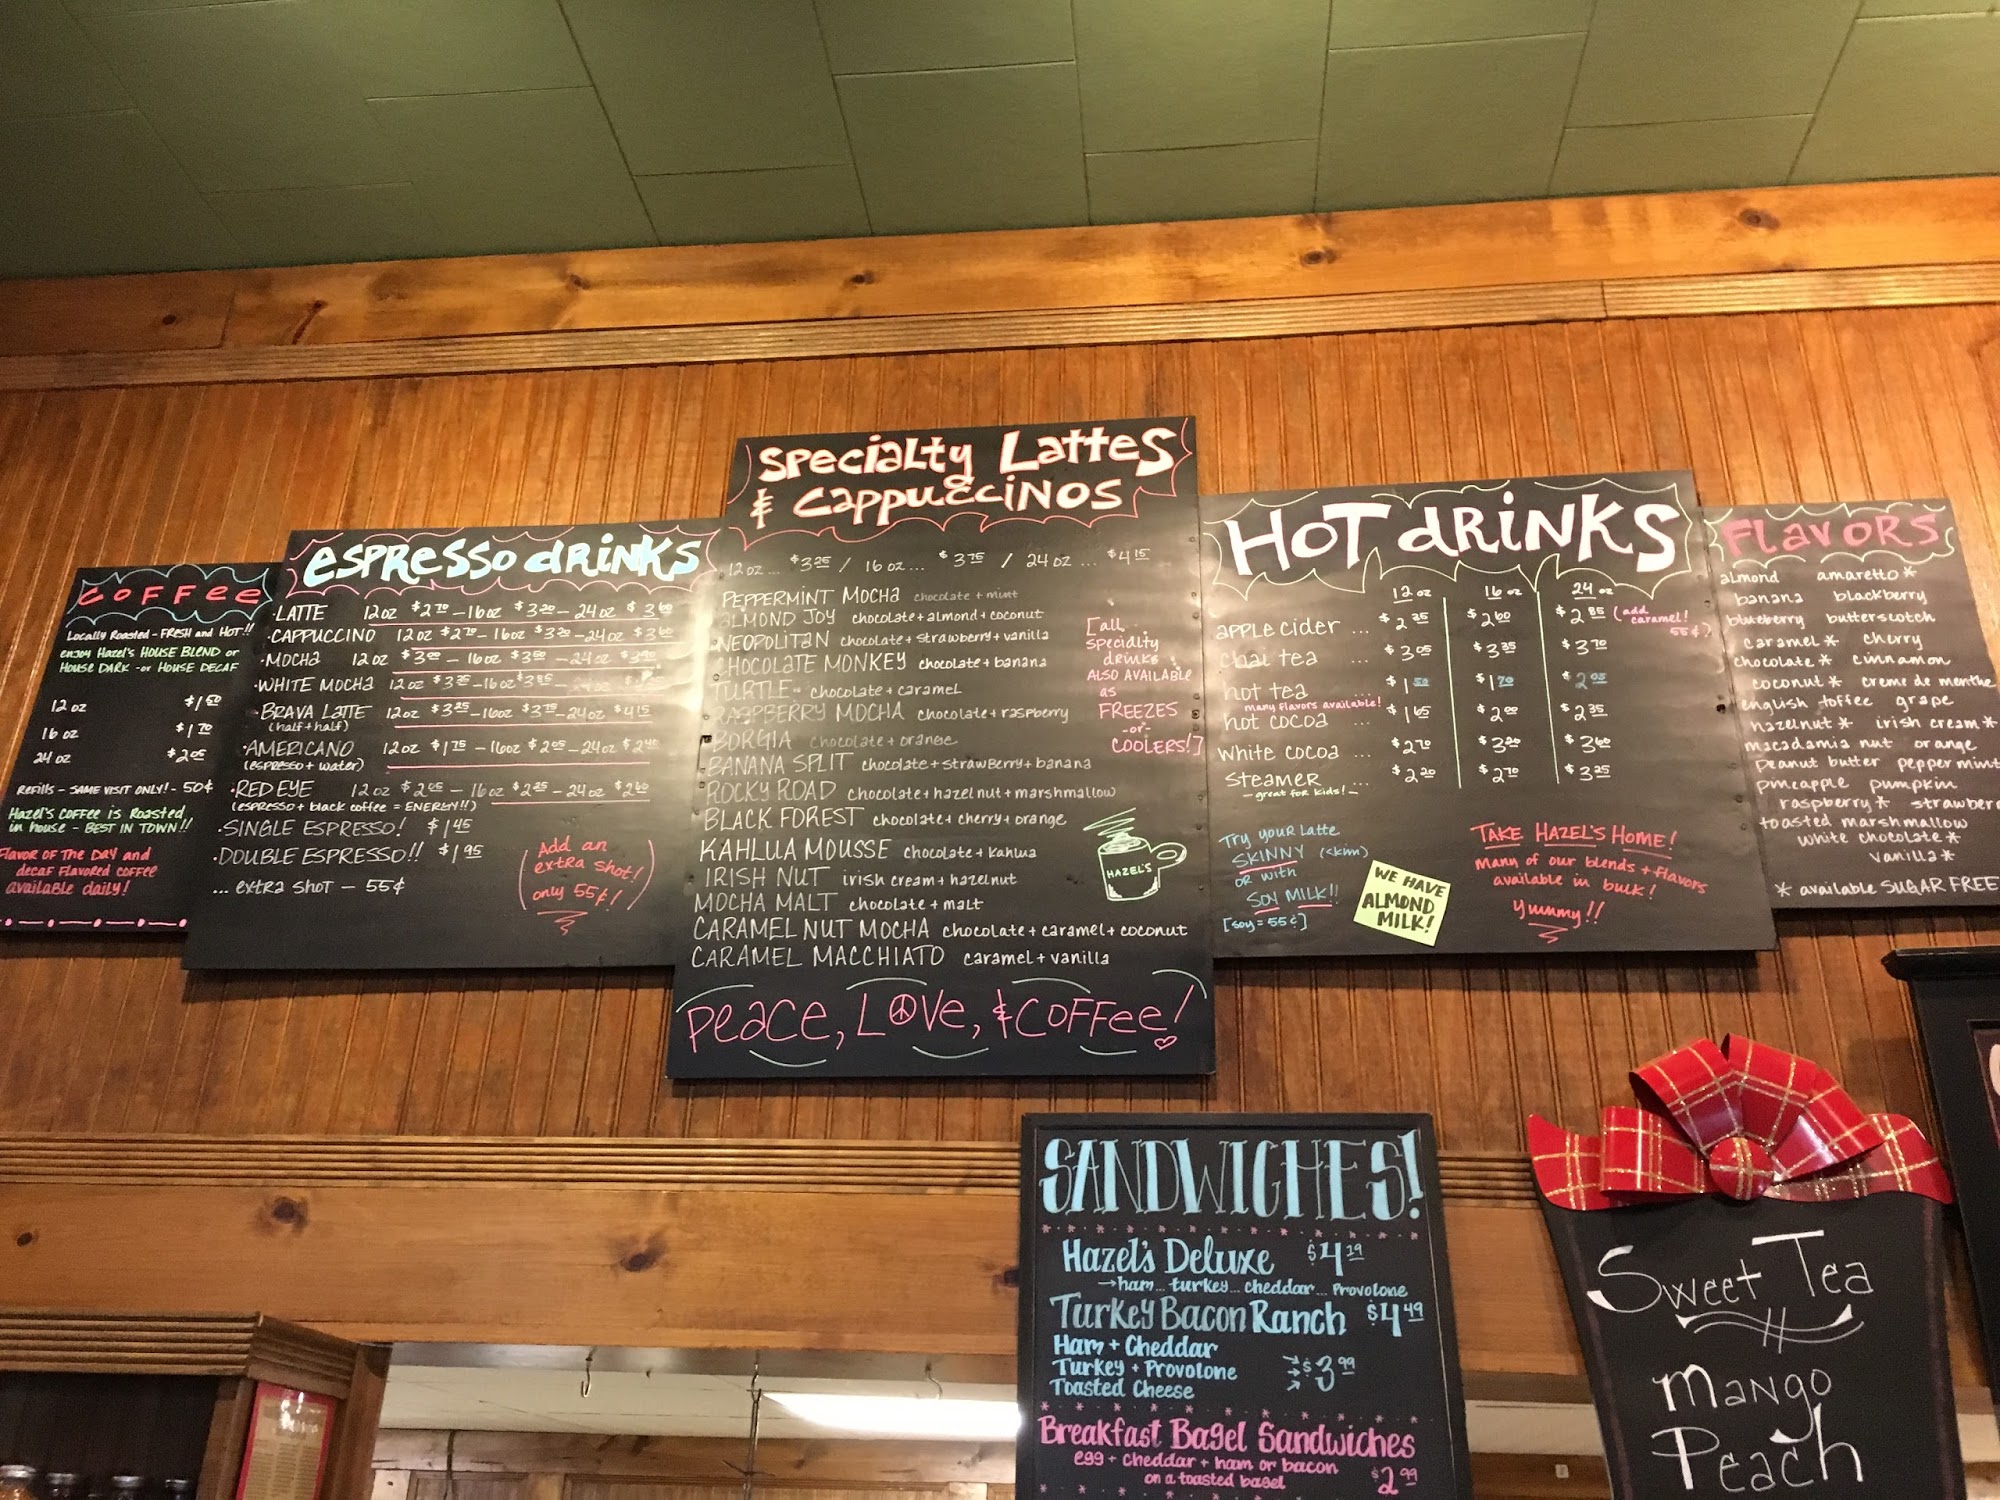 COFFee
Locally Roasted - FRESH and HOT!!
enjoy Hazel's HOUSE BLEND or
HOUSE DARK - or HOUSE DECAF
12 oz $1.50
16 oz $1.70
24 oz $2.05
Refills - SAME VISIT ONLY! - 50¢
Hazel's COFFee is Roasted
in house - BEST IN TOWN!!
Flavor of THE DAY and
decaf Flavored coffee
available daily!
espresso drinks
·LATTE 12oz $2.70 - 16oz $3.20 - 24oz $3.60
·CAPPUCCINO 12oz $2.70 - 16oz $3.20 - 24oz $3.60
·MOCHa 12oz $3.00 - 16oz $3.50 - 24oz $3.90
·WHITE MOCHa 12oz $3.35 - 16oz $3.85 - 24oz
·BRAVA LATTE 12oz $3.25 - 16oz $3.75 - 24oz $4.15
(half+half)
·AMERICANO 12oz $1.75 - 16oz $2.05 - 24oz $2.40
(espresso + water)
·RED EYE 12oz $2.05 - 16oz $2.25 - 24oz $2.60
(espresso + black coffee = ENERGY!!)
·SINGLE ESPRESSO! $1.45
·DOUBLE ESPRESSO!! $1.95
... extra SHOT - 55¢
(Add an
extra shot!
only 55¢!)
Specialty Lattes
& Cappuccinos
12oz ... $3.25 / 16 oz ... $3.75 / 24 oz ... $4.15
PEPPERMINT MOCHa chocolate + mint
aLMOND JOY chocolate + almond + coconut
NEOPOLITAN chocolate + strawberry + vanilla
CHOCOLATE MONKEY chocolate + banana
TURTLE chocolate + caramel
RASPBERRY MOCHA chocolate + raspberry
BORGIA chocolate + orange
BANANA SPLIT chocolate + strawberry + banana
ROCKY ROAD chocolate + hazelnut + marshmallow
BLACK FOREST chocolate + cherry + orange
KAHLUA MOUSSE chocolate + Kahlua
IRISH NUT irish cream + hazelnut
MOCHA MALT chocolate + malt
CARAMEL NUT MOCHA chocolate + caramel + coconut
CARAMEL MACCHIATO caramel + vanilla
[all
specialty
drinks
ALSO AVAILABLE
as
FREEZES
-or-
COOLERS!]
HAZEL'S
Peace, Love, & COFFee!
HOT dRiNKS
12 oz 16 oz 24 oz
apple cider ... $2.35 $2.60 $2.85 (add caramel! 55¢)
chai tea ... $3.05 $3.35 $3.70
hot tea ... $1.50 $1.70 $2.05
many flavors available!
hot cocoa ... $1.65 $2.00 $2.35
white cocoa ... $2.70 $3.20 $3.60
steamer $2.20 $2.70 $3.25
- great for kids! -
Try your Latte
SKINNY (skim)
or with
SOY MILK!!
[soy = 55¢]
WE HAVE
ALMOND
MILK!
TAKE HAZEL'S HOME!
Many of our blends + flavors
available in bulk!
yummy!!
Flavors
almond amaretto*
banana blackberry
blueberry butterscotch
caramel* cherry
chocolate* cinnamon
coconut* creme de menthe
english toffee grape
hazelnut* irish cream*
macadamia nut orange
peanut butter peppermint
pineapple pumpkin
raspberry*
toasted marshmallow
white chocolate*
vanilla*
* available SUGAR FREE
SANDWICHES!
Hazel's Deluxe $4.19
→ham... turkey... cheddar... Provolone
Turkey Bacon Ranch $4.49
Ham + Cheddar
Turkey + Provolone →$3.99
Toasted Cheese
Breakfast Bagel Sandwiches
egg + cheddar + ham or bacon
on a toasted bagel $2.99
Sweet Tea
Mango
Peach